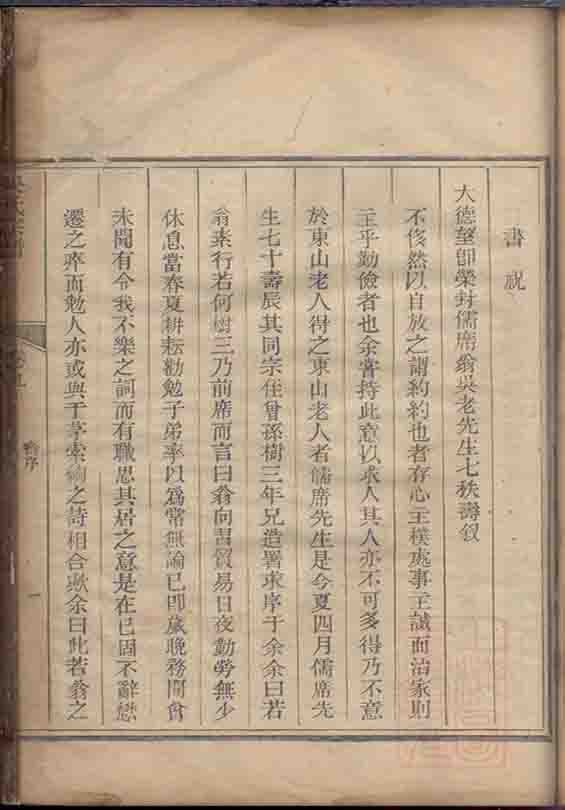 書祝
大德望卽榮封儒席翁吳老先生七秩壽叙
不侈然以自放之謂約約也者存心主樸處事主誠而治家則
主乎勤儉者也余嘗持此意以求人其人亦不可多得乃不意
於東山老人得之東山老人者儒席先生是今夏四月儒席先
生七十壽辰其同宗住曾孫樹三年兄造署求序于余余曰若
翁素行若何樹三乃前席而言曰翁向習貿易日夜勤勞無少
休息當春夏耕耘勸勉子弟率以爲常無論已卽歲晚務閒曾
未聞有今我不樂之詞而有職思其居之意是在已固不辭懋
遷之瘁而勉人亦或與于茅索綯之詩相合歟余曰此若翁之
壽序
一